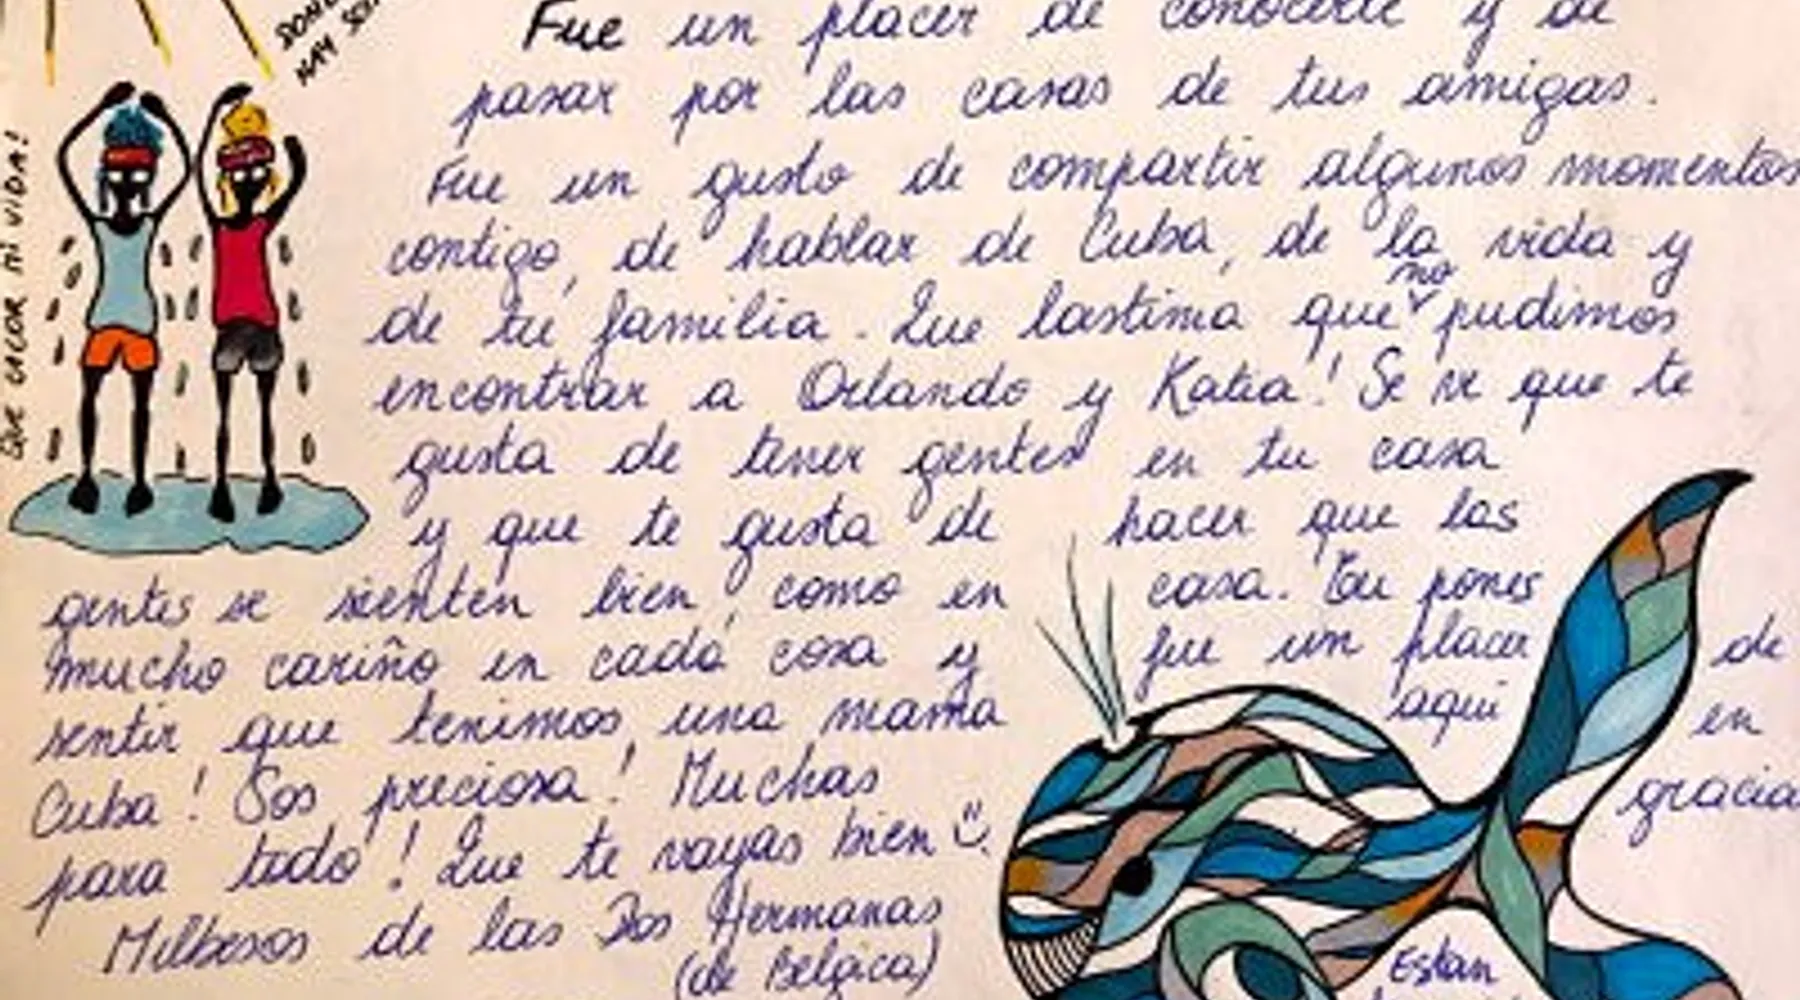 DONDE
HAY SOL
QUE CALOR MI VIDA!
Fue un placer de conocerte y de
pasar por las casas de tus amigas.
Fue un gusto de compartir algunos momentos
contigo, de hablar de Cuba, de la vida y
de tu familia. Que lastima que no pudimos
encontrar a Orlando y Katia! Se ve que te
gusta de tener gentes en tu casa
y que te gusta de hacer que las
gentes se sienten bien, como en casa. Tu pones
mucho cariño en cada cosa y fue un placer de
sentir que tenimos una mama aqui en
Cuba! Sos preciosa! Muchas gracia
para todo! Que te vayas bien
Milbesos de las Dos Hermanas
(de Belgica)
Estan